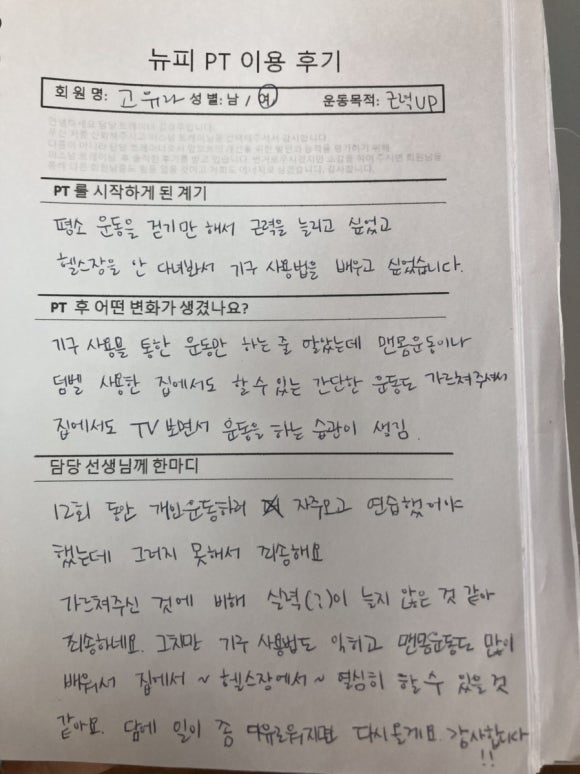 뉴피 PT 이용 후기
회원 명: 고위라 성 별: 남 / 여 운동목적: 근력UP
PT 를 시작하게 된 계기
평소 운동을 걷기만 해서 근력을 늘리고 싶었고
헬스장을 안 다녀봐서 기구 사용법을 배우고 싶었습니다.
PT 후 어떤 변화가 생겼나요?
기구 사용을 통한 운동만 하는 줄 알았는데 맨몸운동이나
덤벨 사용한 집에서도 할 수 있는 간단한 운동도 가르쳐주셔서
집에서도 TV 보면서 운동을 하는 습관이 생김.
담당 선생님께 한마디
12회 동안 개인운동하러 자주오고 연습했어야
했는데 그러지 못해서 죄송해요
가르쳐주신 것에 비해 실력(?)이 늘지 않은 것 같아
죄송하네요. 그치만 기구 사용법도 익히고 맨몸운동도 많이
배워서 집에서~ 헬스장에서~ 열심히 할 수 있을 것
같아요. 담에 일이 좀 여유로워지면 다시 올게요. 감사합니다
!!